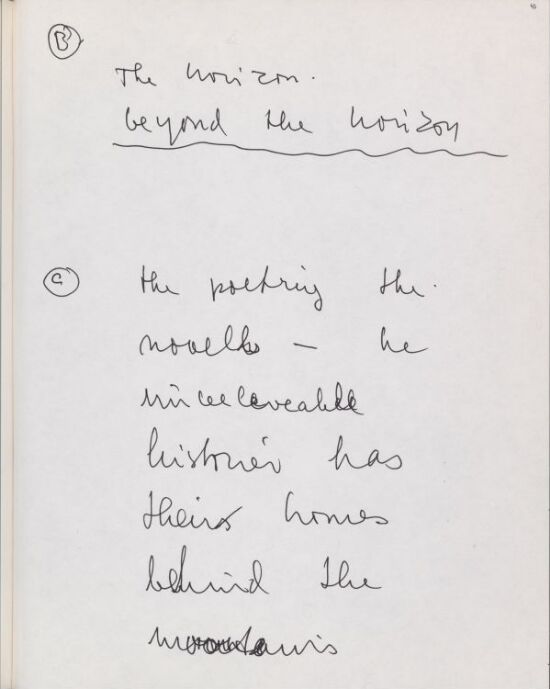 B
The horizon.
beyond the horizon
C
the poetriy the.
novells – he
histories has
theirs homes
behind the